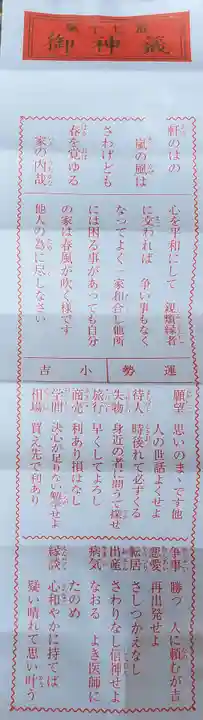 第七十番
御神籤
軒のはの
嵐の風は
さわげども
春を覚ゆる
家の内哉
心を平和にして 親類縁者
に交われば 争い事もなく
なってよく一家和合し他所
には困る事があっても自分
の家は春風が吹く様です
他人の為に尽しなさい
運勢 小吉
願望 思いのまゝです他
人の世話よくせよ
待人 時後れて必ずくる
失物 身近の者に問うて探せ
旅行 早くしてよろし
商売 利あり損はなし
学問 決心が足りない勉学せよ
相場 買え先で利あり
争事 勝つ 人に頼むが吉
恋愛 再出発せよ
転居 さしつかえなし
出産 さわりなし信神せよ
病気 なおる よき医師に
たのめ
縁談 心和やかに持てば
疑い晴れて思い叶う